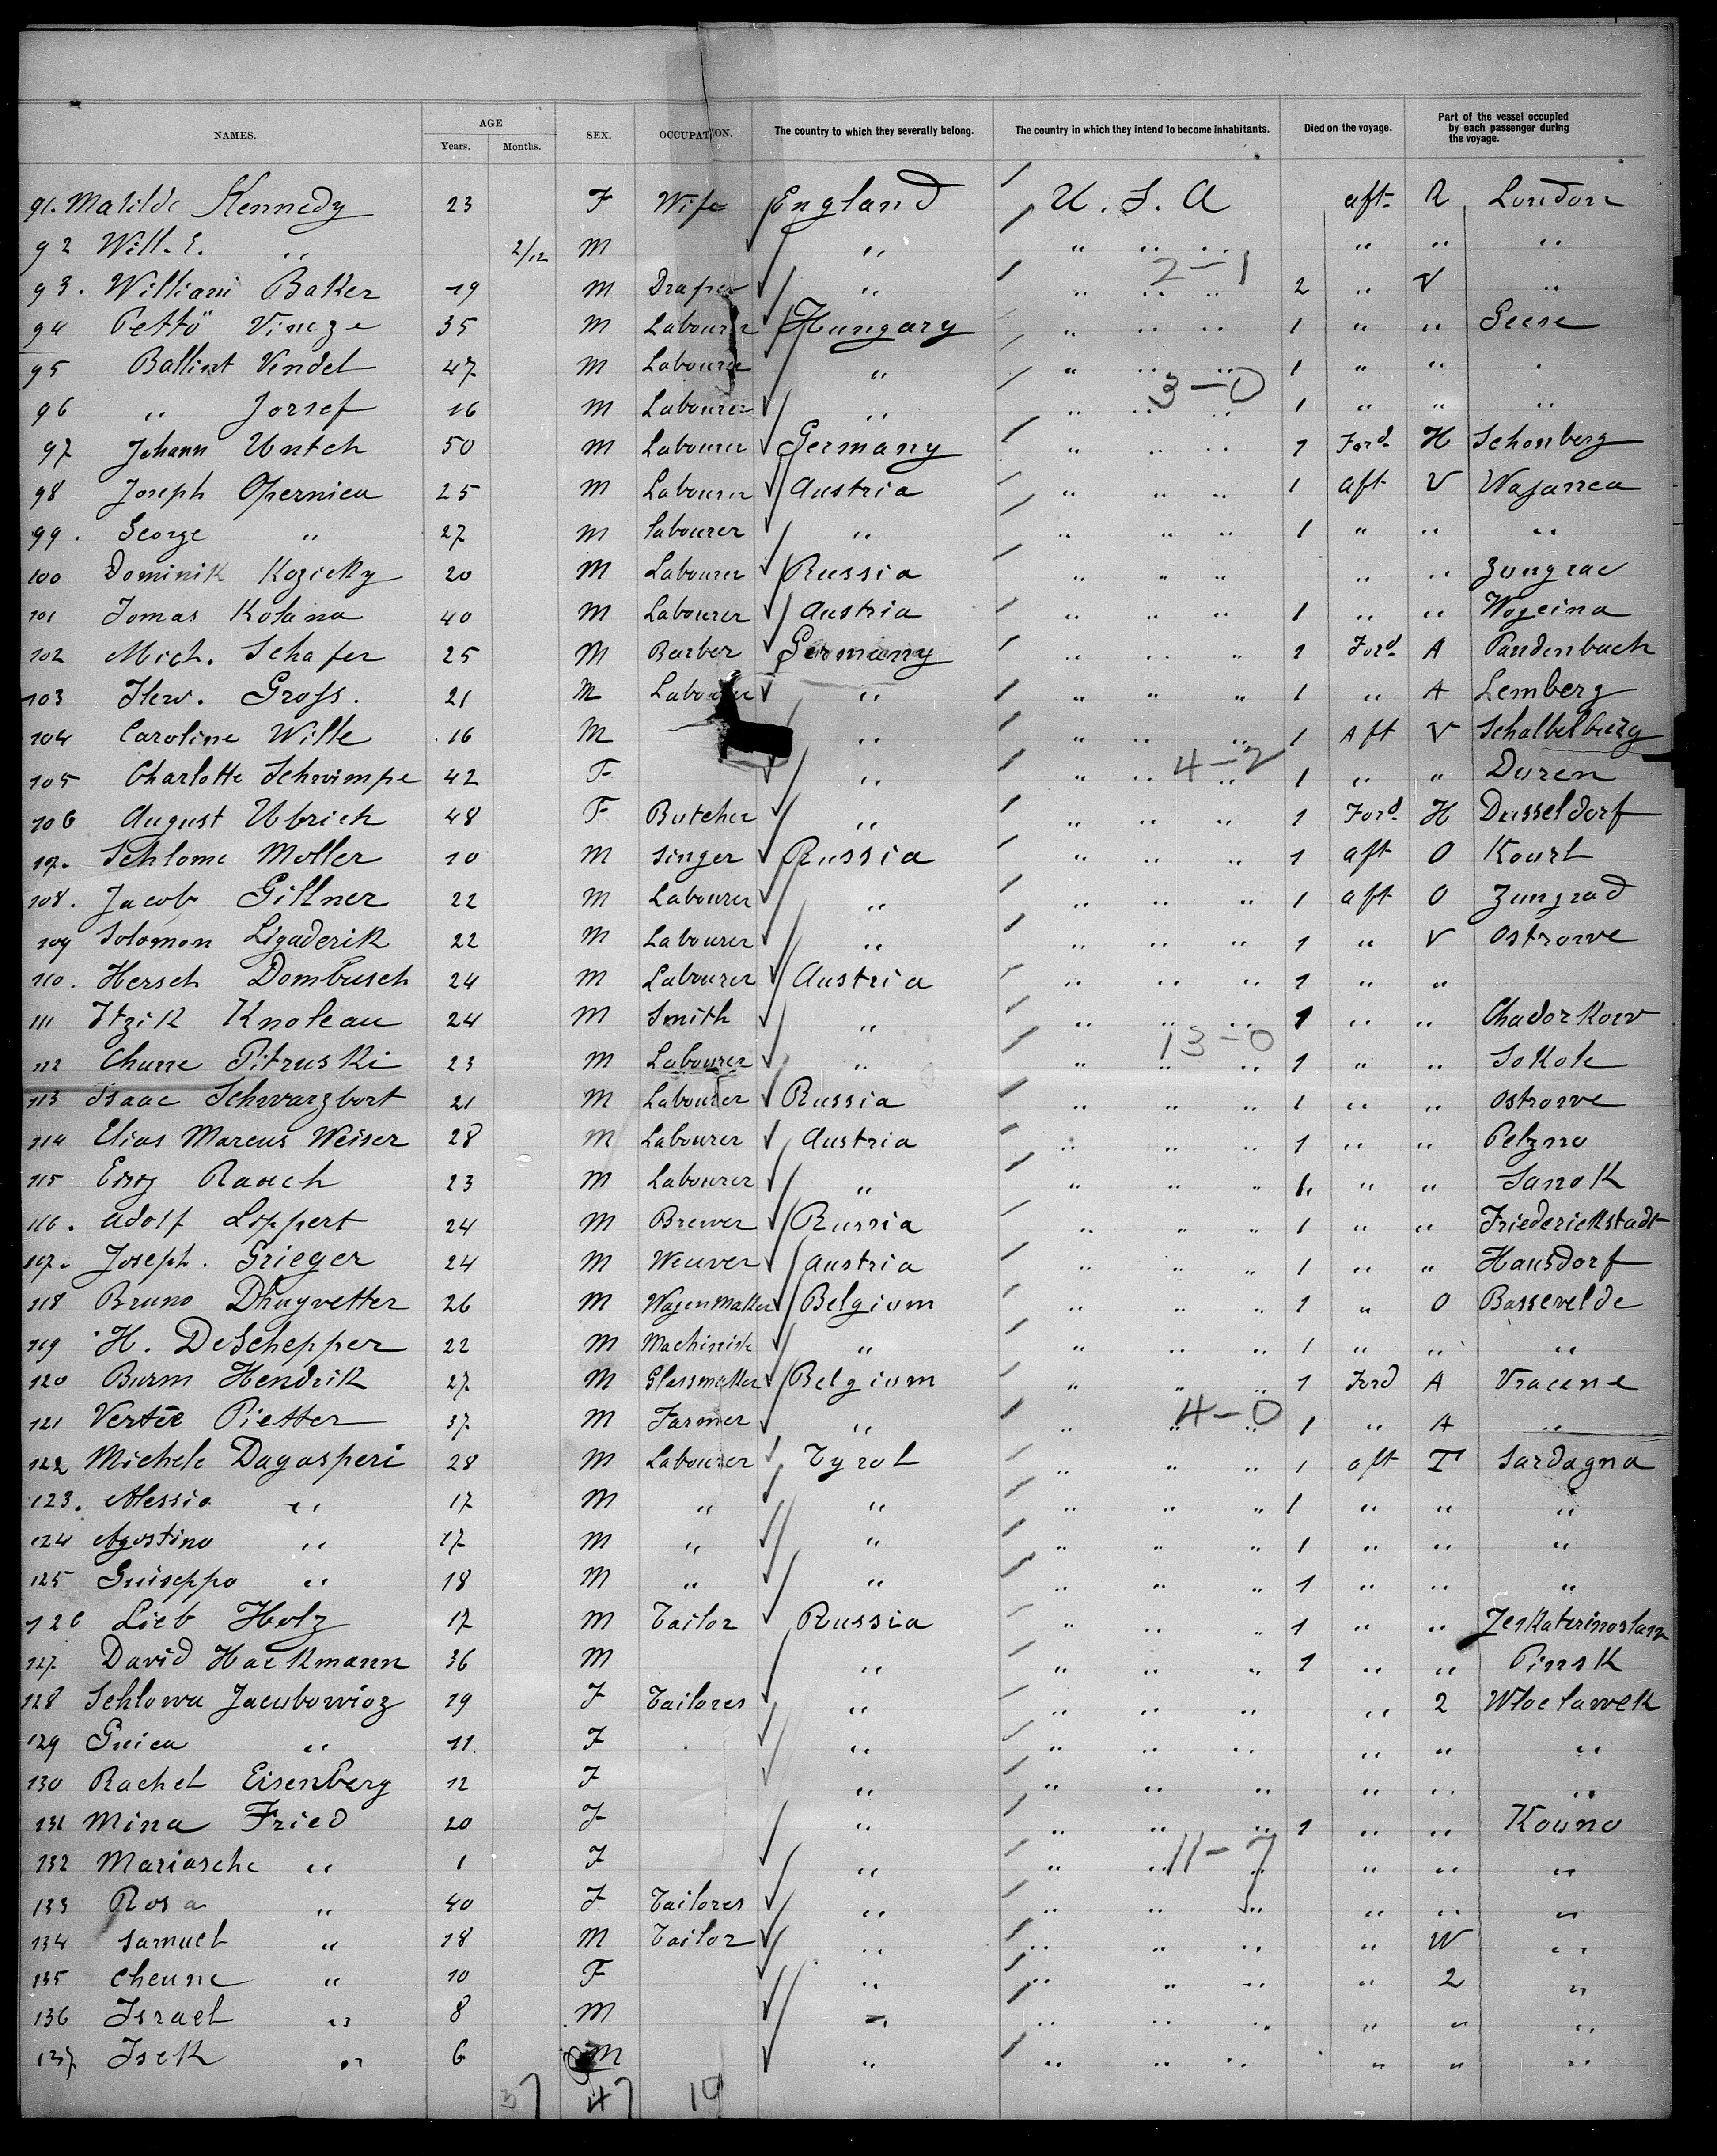 NAMES. AGE Years. Months. SEX. OCCUPATION. The country to which they severally belong. The country in which they intend to become inhabitants. Died on the voyage. Part of the vessel occupied by each passenger during the voyage.
91. Matilde Kennedy 23 F Wife England U. S. A aft. R London
92 Will. E. " 2/12 M " " " " " " "
2-1
93. William Baker 19 M Draper " " " " 2 " V "
94 Pettö Vincze 35 M Labourer Hungary " " " 1 " " Geese
95 Ballint Vendel 47 M Labourer " " " " 1 " " "
3-0
96 " Jorsef 16 M Labourer " " " " 1 " " "
97 Johann Untch 50 M Labourer Germany " " " 1 Ford. H Schonberg
98 Joseph Opernica 25 M Labourer Austria " " " 1 aft V Wajanrea
99. George " 27 M labourer " " " " 1 " " "
100 Dominik Kozicky 20 M Labourer Russia " " " " " Zungrad
101 Tomas Kotana 40 M Labourer Austria " " " 1 " " Wojcina
102 Mich. Schafer 25 M Barber Germany " " " 1 Ford. A Paudenbach
103 Herv. Gross. 21 M Labourer " " " " 1 " A Lemberg
104 Caroline Wille 16 M " " " " 1 Aft V Schalbelburg
4-2
105 Charlotte Schwimpe 42 F " " " " 1 " " Duren
106 August Ubrich 48 F Butcher " " " " 1 Ford. H Dusseldorf
107. Schlome Moller 10 M Singer Russia " " " 1 aft O Kourl
108. Jacob Gillner 22 M Labourer " " " " 1 aft O Zungrad
109 Solomon Ligaderik 22 M Labourer " " " " 1 " V Ostrowe
110. Hersch Dombusch 24 M Labourer Austria " " " 1 " "
111 Itzik Knoleau 24 M Smith " " " " 1 " " Chadorkow
13-0
112 Chune Pitruski 23 M Labourer " " " " 1 " " Sokole
113 Isaac Schwarzbort 21 M Labourer Russia " " " 1 " " Ostrowe
114 Elias Marcus Weiser 28 M Labourer Austria " " " 1 " " Pelzno
115 Rauch 23 M Labourer " " " " 1 " " Sanok
116. Adolf Lippert 24 M Brewer Russia " " " 1 " " Friederickstadt
117. Joseph. Grieger 24 M Weaver Austria " " " 1 " " Hansdorf
118 Bruno Dhuyvetter 26 M Wagenmaker Belgium " " " 1 " O Bassevelde
119 H. DeSchepper 22 M Machinist " " " " 1 " " "
120 Burm Hendrik 27 M Glassmaker Belgium " " " 1 Ford A Vracene
4-0
121 Vertëe Pietter 37 M Farmer " " " " 1 " A "
122 Michele Dagasperi 28 M Labourer Tyrol " " " 1 aft T Sardagna
123. Alessio " 17 M " " " " " 1 " " "
124 Agostino " 17 M " " " " " 1 " " "
125 Guiseppo " 18 M " " " " " 1 " " "
126 Lieb Holz 17 M Tailor Russia " " " 1 " " Jeskaterinoslaw
127. David Hackmann 36 M " " " " 1 " " Pinsk
128 Schlowa Jacubowioz 19 F Tailores " " " " " 2 Wloclawek
129 Guica " 11 F " " " " " " "
130 Rachel Eisenberg 12 F " " " " " " "
131 Mina Fried 20 F " " " " 1 " " Kouno
11-7
132 Mariasche " 1 F " " " " " " "
133 Rosa " 40 F Tailores " " " " " " "
134 Samuel " 18 M Tailor " " " " " W "
135 Cheune " 10 F " " " " " 2 "
136 Israel " 8 M " " " " " " "
137 Isek " 6 M " " " " " " "
37 47 19